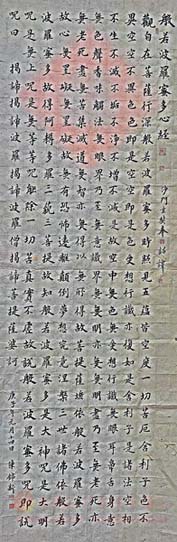 般若波羅蜜多心經 沙門玄奘奉詔譯
觀自在菩薩行深般若波羅蜜多時照見五蘊皆空度一切苦厄舍利子色不
異空空不異色色即是空空即是色受想行識亦復如是舍利子是諸法空相
不生不滅不垢不淨不增不減是故空中無色無受想行識無眼耳鼻舌身意
無色聲香味觸法無眼界乃至無意識界無無明亦無無明盡乃至無老死亦
無老死盡無苦集滅道無智亦無得以無所得故菩提薩埵依般若波羅蜜多
故心無罣礙無罣礙故無有恐怖遠離顛倒夢想究竟涅槃三世諸佛依般若
波羅蜜多故得阿耨多羅三藐三菩提故知般若波羅蜜多是大神咒是大明
咒是無上咒是無等等咒能除一切苦真實不虛故說般若波羅蜜多咒即說
咒曰 揭諦揭諦波羅揭諦波羅僧揭諦菩提薩婆訶